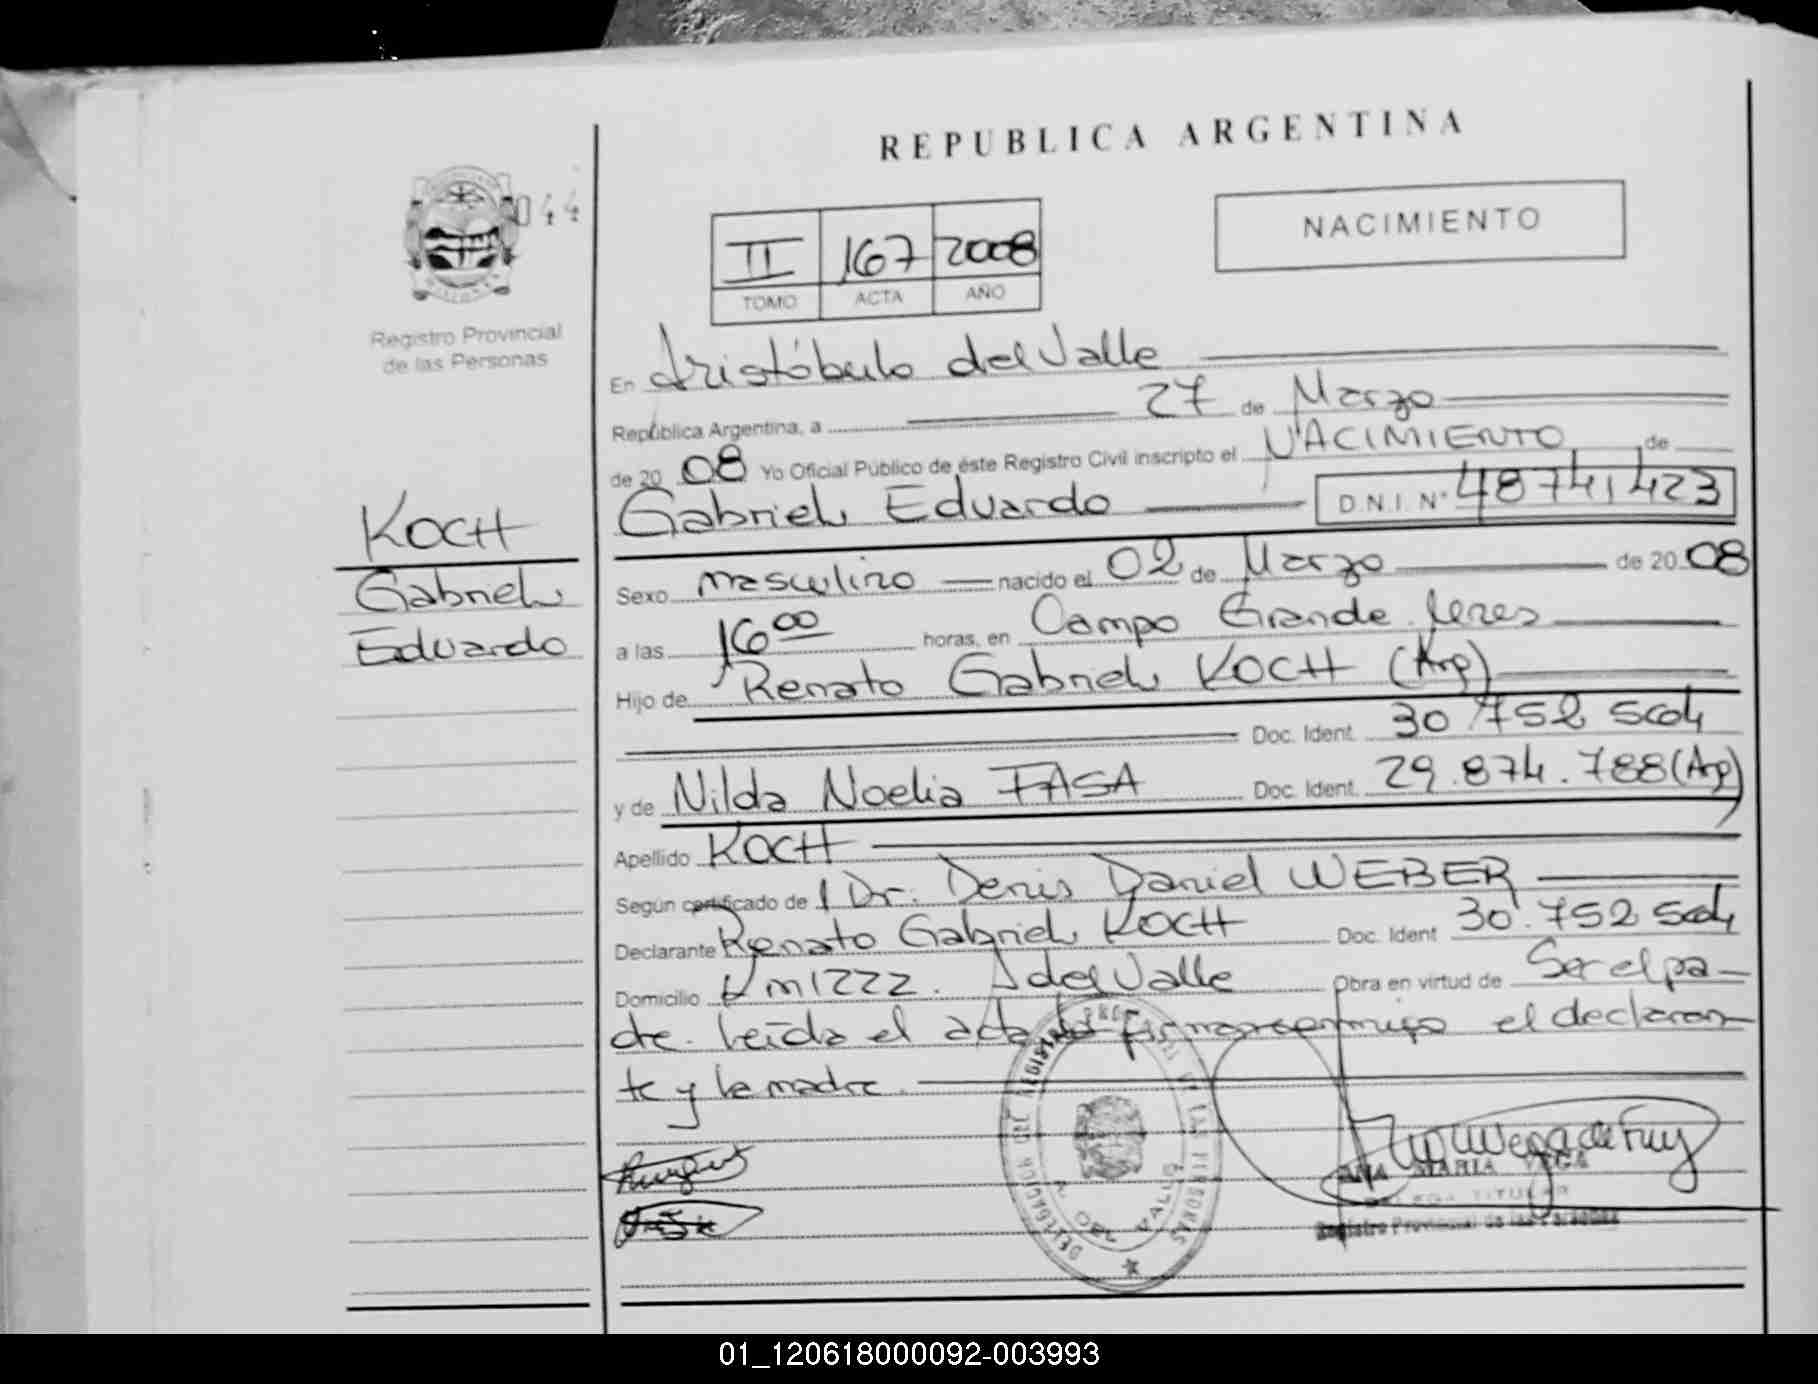 REPUBLICA ARGENTINA
044
NACIMIENTO
II 167 2008
TOMO ACTA AÑO
Registro Provincial
de las Personas
En Aristóbulo del Valle
República Argentina, a 27 de Marzo
de 20 08 Yo Oficial Público de éste Registro Civil inscripto el NACIMIENTO de
Gabriel Eduardo D.N.I. Nº 48741423
KOCH
Gabriel
Eduardo
Sexo masculino nacido el 02 de Marzo de 20 08
a las 16 00 horas, en Campo Grande
Hijo de Renato Gabriel KOCH (Arg)
Doc. Ident. 30.752 564
y de Nilda Noelia FASA Doc. Ident. 29.874.788 (Arg)
Apellido KOCH
Según certificado de Dr. Denis Daniel WEBER
Declarante Renato Gabriel KOCH Doc. Ident 30.752 564
Domicilio Km 1222. A del Valle Obra en virtud de Ser el pa-
dre. Leída el acta la firman conmigo el declaran-
te y la madre.
ANA MARIA VEGA
DELEGA TITULAR
Registro Provincial de las Personas
DELEGACION DEL REGISTRO PROVINCIAL DE LAS PERSONAS
A. DEL VALLE
01_120618000092-003993